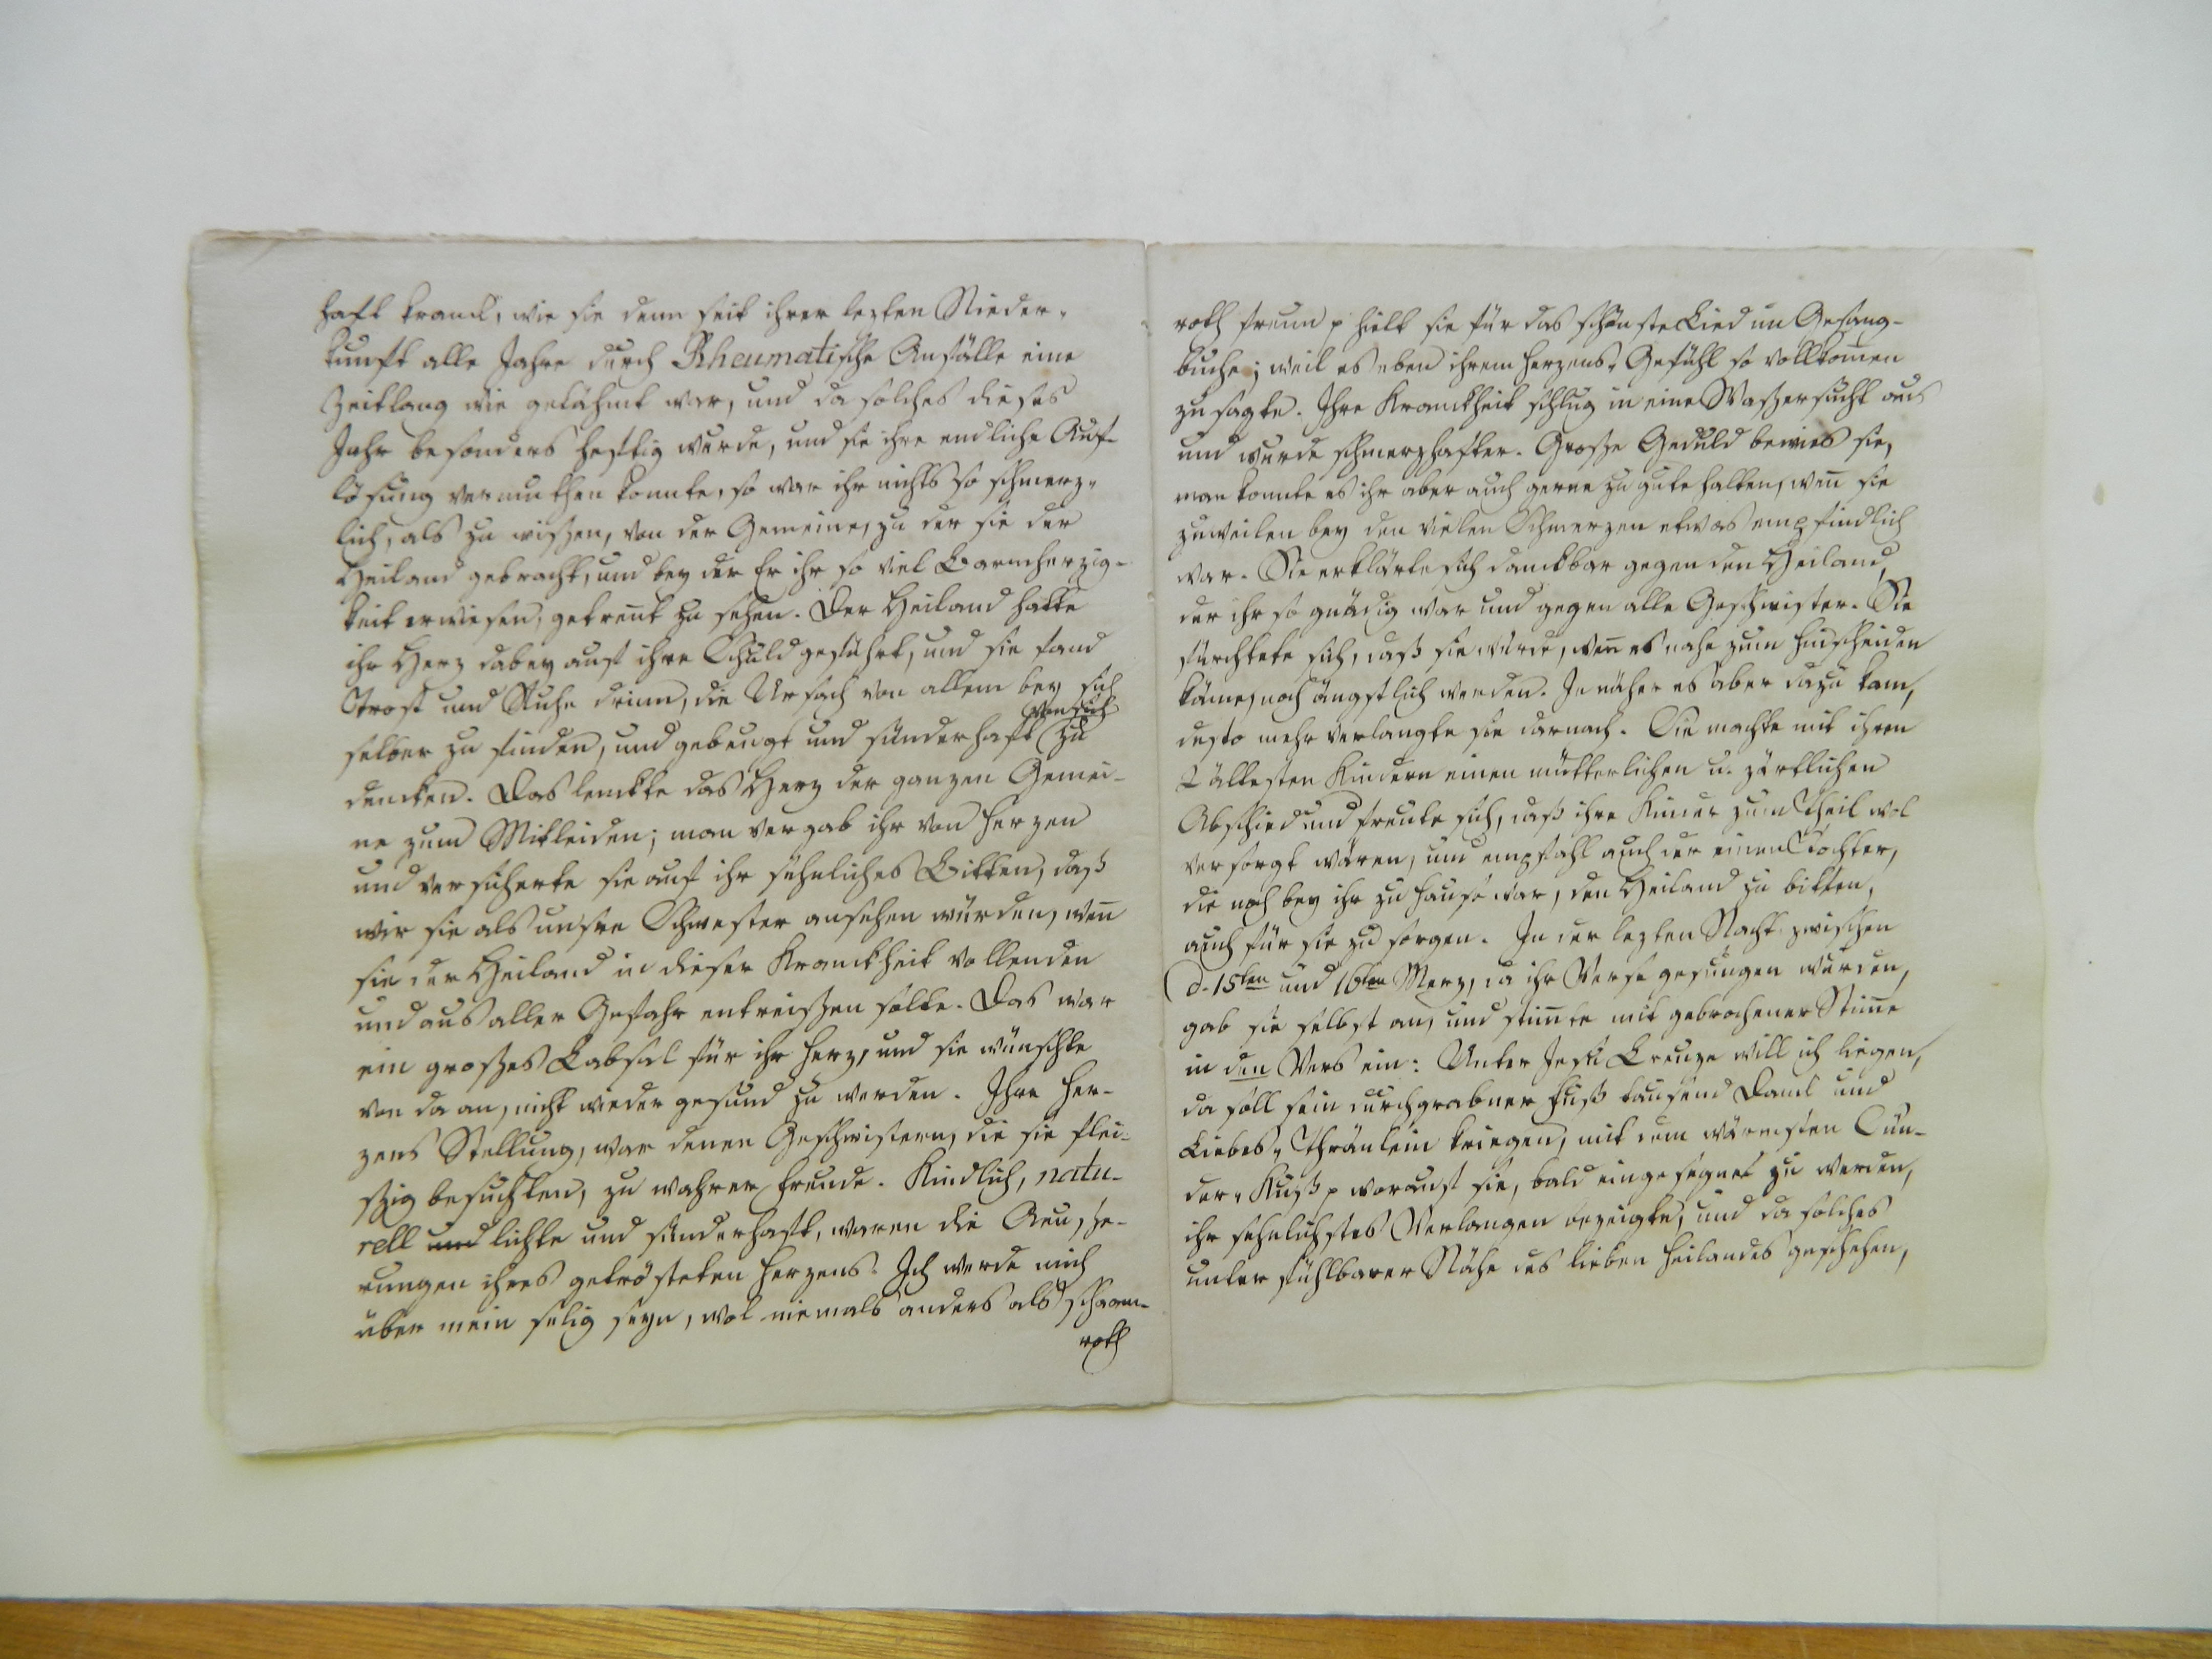 haft kranck, wie sie denn seit ihrer lezten Nieder-
kunft alle Jahre durch Rheumatische Anfälle eine
Zeitlang wie gelähmt war, und da solches dieses
Jahr besonders heftig wurde, und sie ihre endliche Auf-
lösung vermuthen konnte, so war ihr nichts so schmerz-
lich, als zu wissen, von der Gemeine, zu der sie der
Heiland gebracht, und bey der Er ihr so viel Barmherzig-
keit erwiesen, getreñt zu sehen. Der Heiland hatte
ihr Herz dabey auf ihre Schuld geführt, und sie fand
Trost und Ruhe drinn, die Ursach von allem bey sich
selber zu finden, und gebeugt und sünderhaft von sich zu
dencken. Das lenckte das Herz der ganzen Gemei-
ne zum Mitleiden; man vergab ihr von Herzen
und versicherte sie auf ihr sehnliches Bitten, daß
wir sie als unsre Schwester ansehen würden, weñ
sie der Heiland in dieser Kranckheit vollenden
und aus aller Gefahr entreißen solte. Das war
ein großes Labsal für ihr Herz, und sie wünschte
von da an, nicht wieder gesund zu werden. Ihre Her-
zens Stellung, war denen Geschwistern, die sie flei-
ßig besuchten, zu wahrer Freude. Kindlich, natu-
rell und lichte und sünderhaft, waren die Aeusse-
rungen ihres getrösteten Herzens. Ich werde mich
über mein selig seyn, wol niemals anders als schaam-
roth
roth freun p hielt sie für das schönste Lied im Gesang-
buche; weil es eben ihrem Herzens-Gefühl so vollkom̃en
zu sagte. Ihre Kranckheit schlug in eine Waßersucht aus
und wurde schmerzhafter. Große Geduld bewies sie,
man konnte es ihr aber auch gerne zu gute halten, weñ sie
zuweilen bey den vielen Schmerzen etwas empfindlich
war. Sie erklärte sich danckbar gegen den Heiland,
der ihr so gnädig war und gegen alle Geschwister. Sie
fürchtete sich, daß sie würde, weñ es nahe zum Hinscheiden
käme, noch ängstlich werden. Je näher es aber dazu kam,
desto mehr verlangte sie darnach. Sie machte mit ihren
2 ältesten Kindern einen mütterlichen u. zärtlichen
Abschied und freute sich, daß ihre Kinder zum Theil wol
versorgt wären, und empfahl auch der einen Tochter,
die noch bey ihr zu Hause war, den Heiland zu bitten,
auch für sie zu sorgen. In der lezten Nacht zwischen
d. 15ten und 16ten Merz, da ihr Verse gesungen wurden,
gab sie selbst an, und stim̃te mit gebrochener Stim̃e
in den Vers ein: Unter Jesu Creuze will ich liegen,
da soll sein durchgrabner Fuß tausend Danck und
Liebes-Thränlein kriegen, mit dem wärmsten Sün-
der-Kuß p worauf sie, bald eingesegnet zu werden,
ihr sehnlichstes Verlangen bezeigte, und da solches
unter fühlbarer Nähe des lieben Heilandes geschehen,